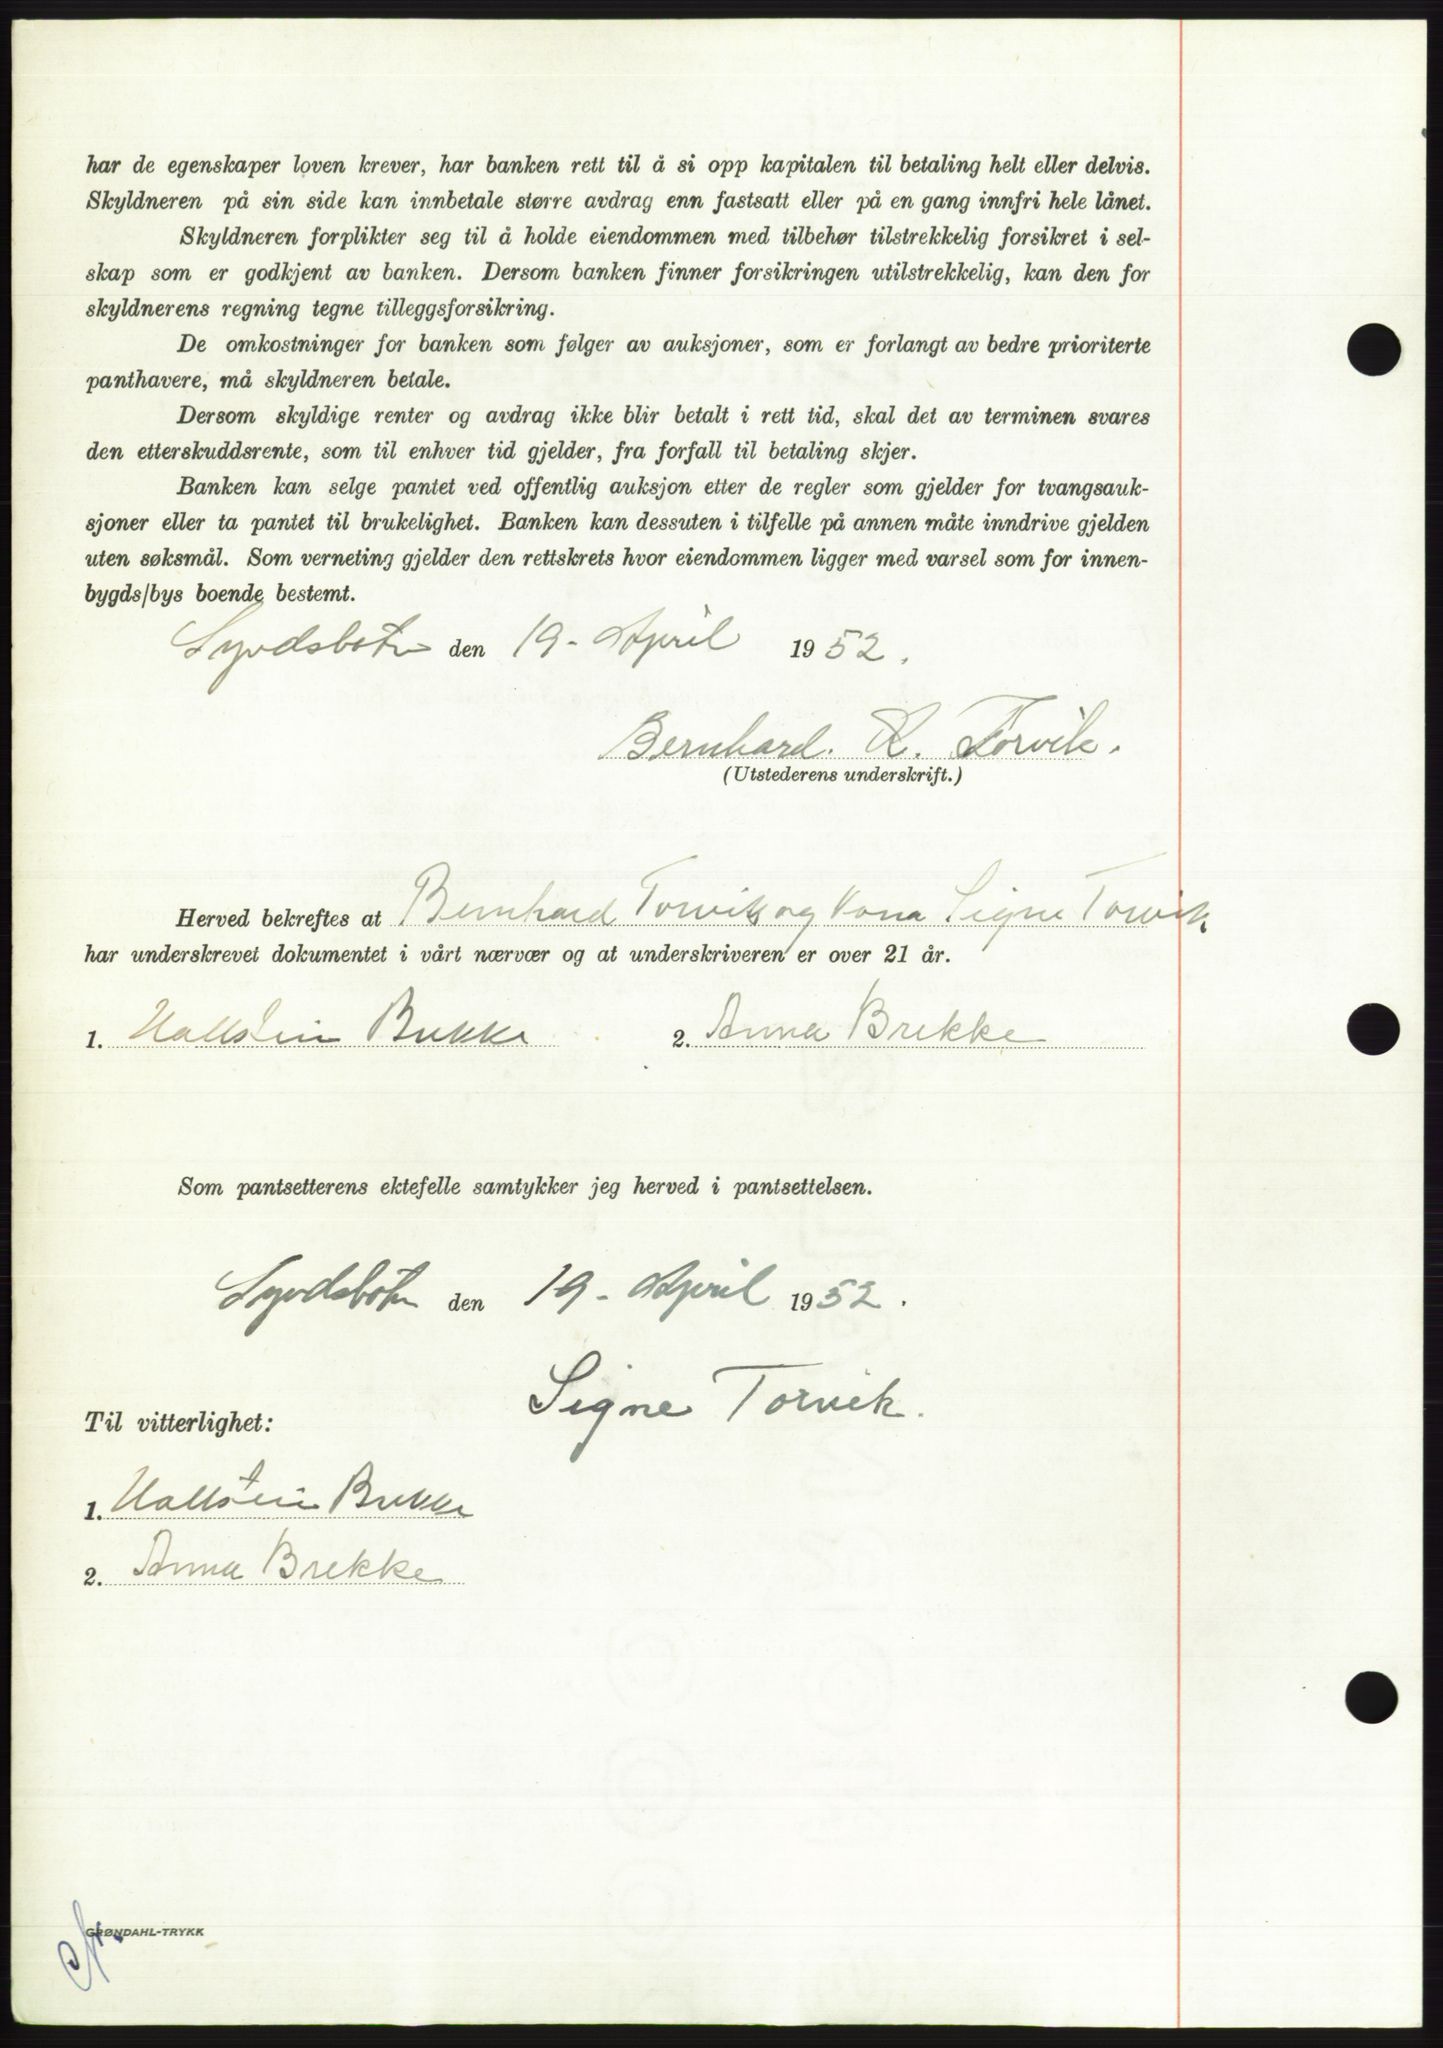 har de egenskaper loven krever, har banken rett til å si opp kapitalen til betaling helt eller delvis.
Skyldneren på sin side kan innbetale større avdrag enn fastsatt eller på en gang innfri hele lånet.
Skyldneren forplikter seg til å holde eiendommen med tilbehør tilstrekkelig forsikret i sel-
skap som er godkjent av banken. Dersom banken finner forsikringen utilstrekkelig, kan den for
skyldnerens regning tegne tilleggsforsikring.
De omkostninger for banken som følger av auksjoner, som er forlangt av bedre prioriterte
panthavere, må skyldneren betale.
Dersom skyldige renter og avdrag ikke blir betalt i rett tid, skal det av terminen svares
den etterskuddsrente, som til enhver tid gjelder, fra forfall til betaling skjer.
Banken kan selge pantet ved offentlig auksjon etter de regler som gjelder for tvangsauk-
sjoner eller ta pantet til brukelighet. Banken kan dessuten i tilfelle på annen måte inndrive gjelden
uten søksmål. Som verneting gjelder den rettskrets hvor eiendommen ligger med varsel som for innen-
bygds/bys boende bestemt.
Syvdsbotn den 19. April 1952.
Bernhard. K. Torvik.
(Utstederens underskrift.)
Herved bekreftes at Bernhard Torvik og Kona Signe Torvik
har underskrevet dokumentet i vårt nærvær og at underskriveren er over 21 år.
1. Hallstein Brekke 2. Anna Brekke
Som pantsetterens ektefelle samtykker jeg herved i pantsettelsen.
Syvdsbotn den 19. April 1952.
Signe Torvik.
Til vitterlighet:
1. Hallstein Brekke
2. Anna Brekke
GRØNDAHL-TRYKK